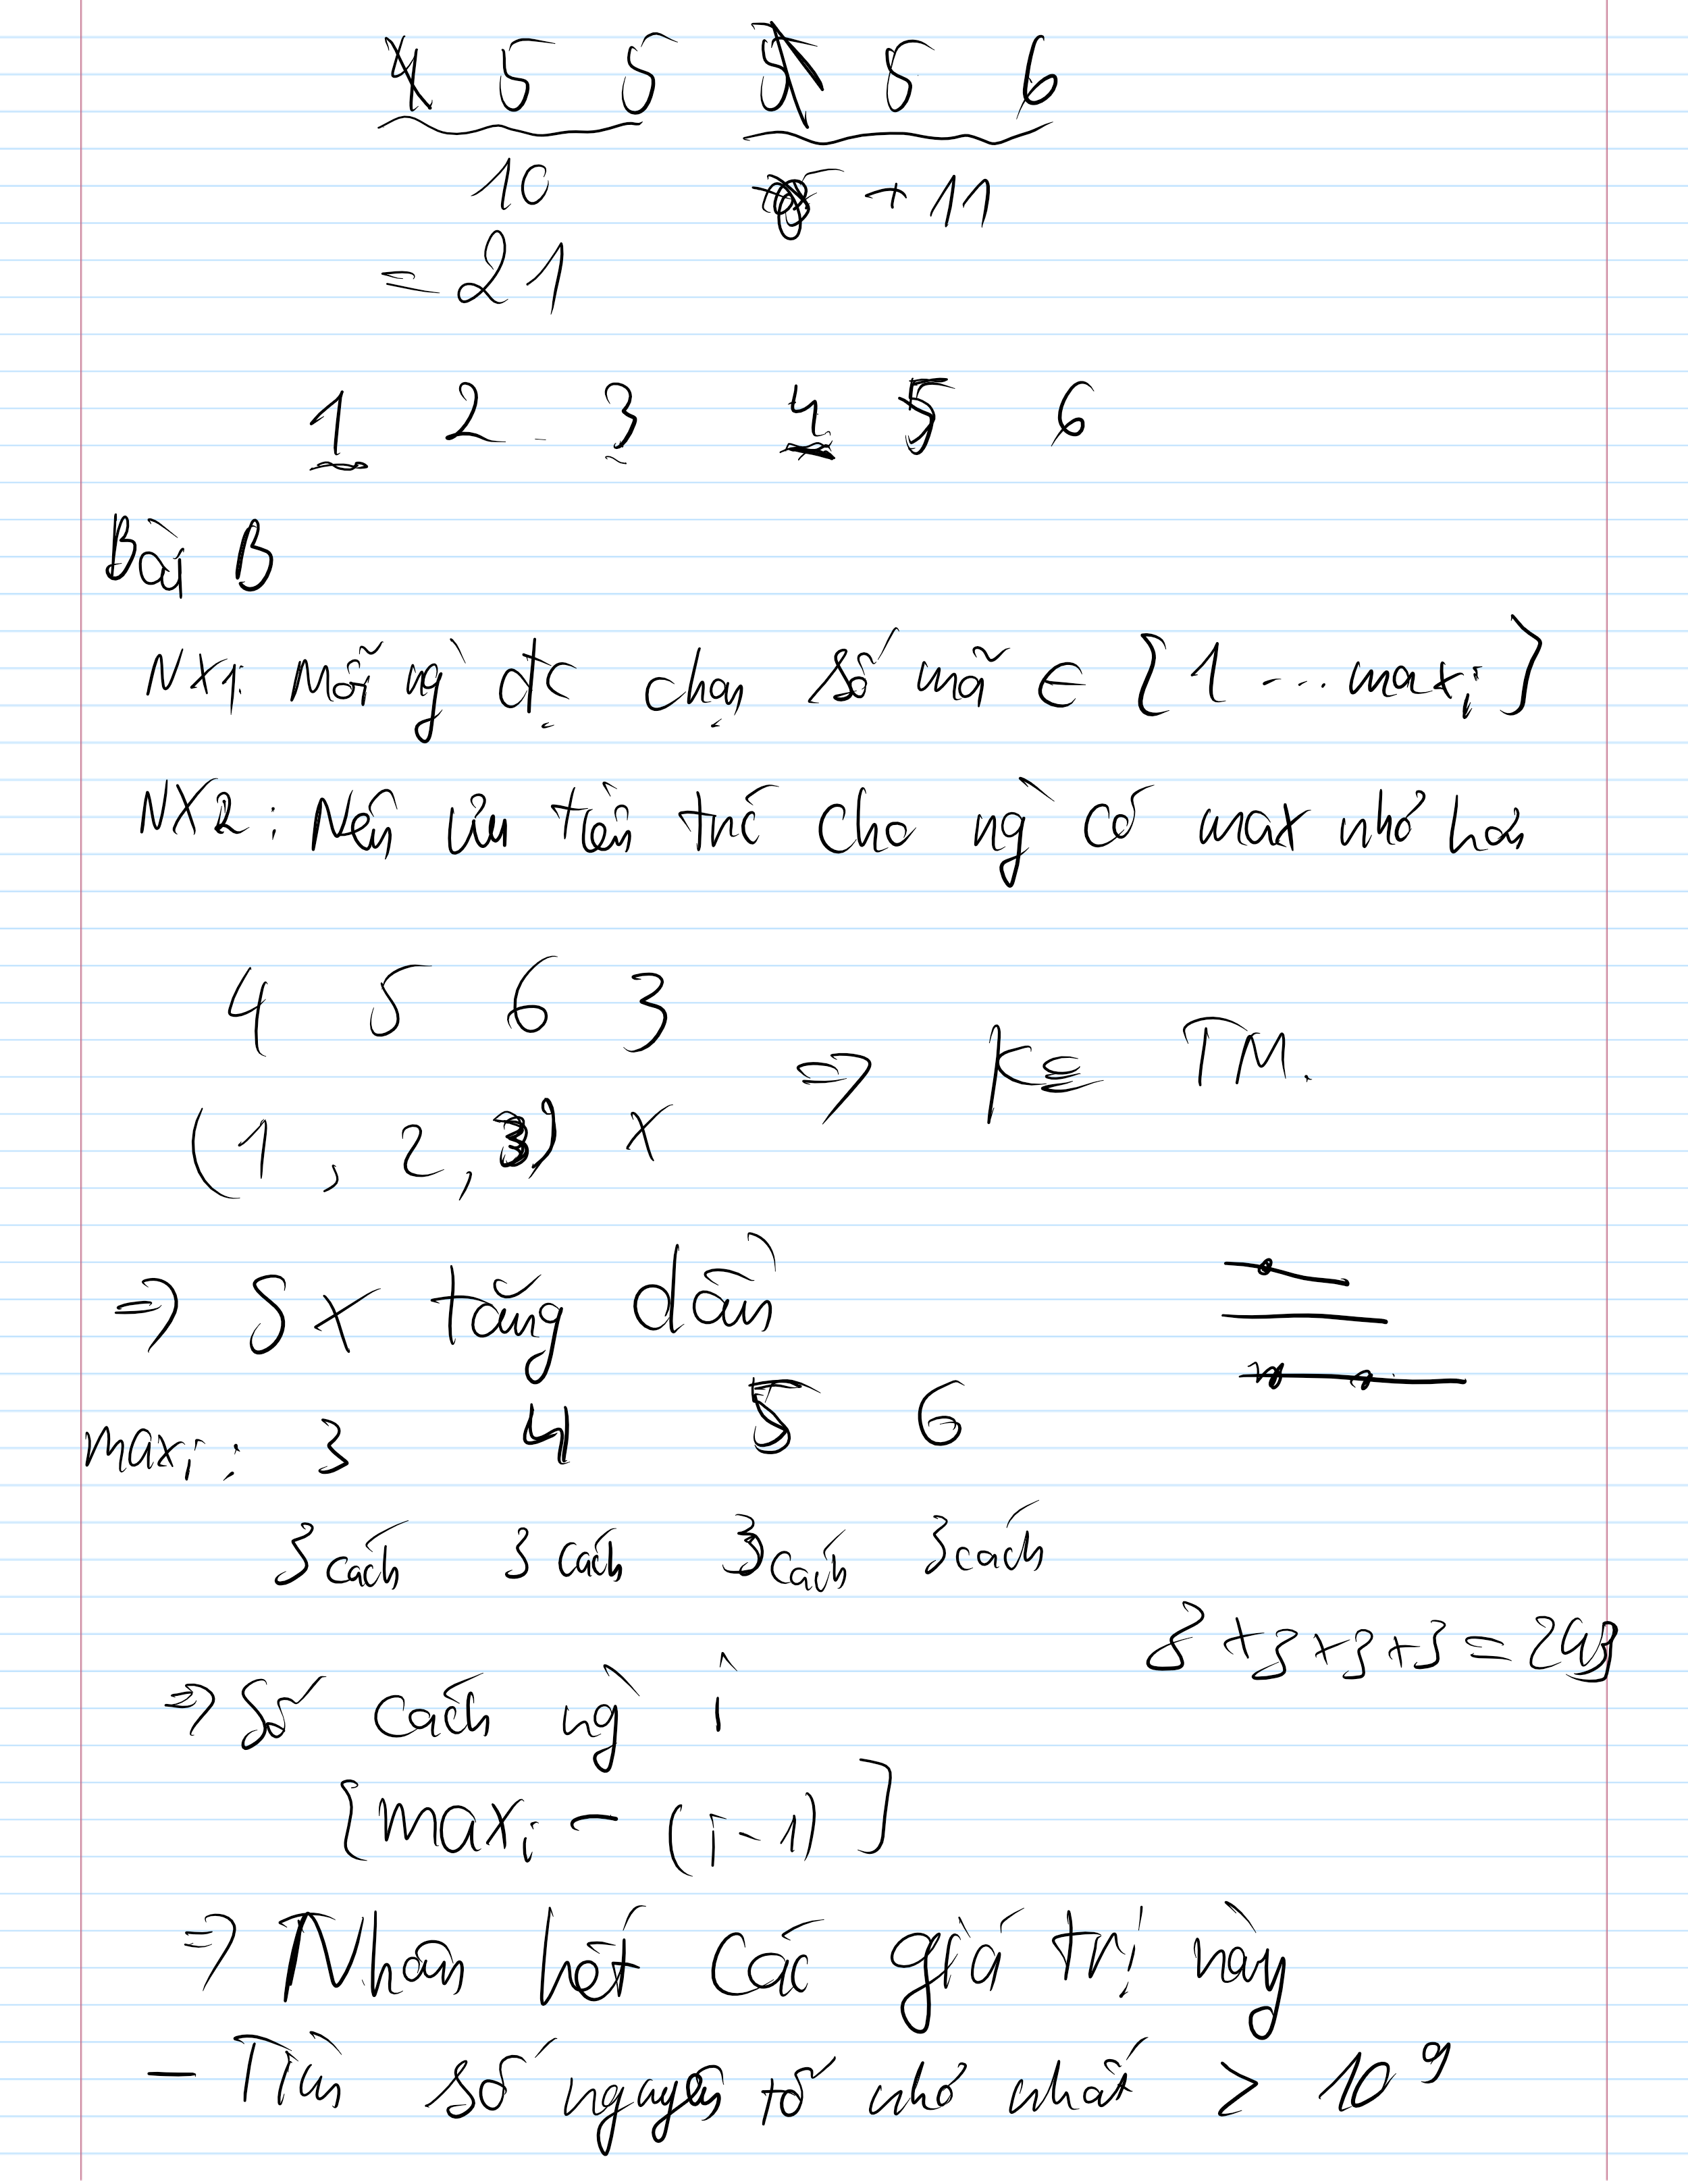 4 5 5 5 5 6
10 + 11
= 21
1 2 3 4 5 6
Bài B
NX1: Mỗi ng` đc chọn số mã ∈ [1 ... maxi]
NX2: Nên ưu tiên trc cho ng` có max nhỏ hơn
4 5 6 3
(1, 2, 3) x ⇒ K TM.
⇒ SX tăng dần
maxi: 3 4 5 6
3 cách 3 cách 3 cách 3 cách
3 + 3 + 3 + 3 =
⇒ Số cách ng` i
[maxi - (i-1)]
⇒ Nhân hết các giá trị này
- Tìm số nguyên tố nhỏ nhất > 10^9